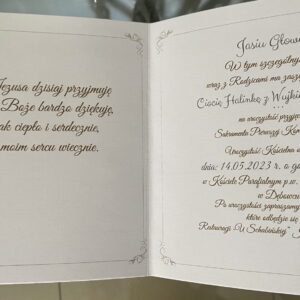 Jezusa dzisiaj przyjmuję
Boże bardzo dziękuję,
ak ciepło i serdecznie,
moim sercu wiecznie.
Jasiu Głow
W tym szczególny
wraz z Rodzicami ma zasz
Ciocię Halinkę z Wujki
na uroczystość przyję
Sakramentu Pierwszej Kom
Uroczystość Kościelna o
dnia: 14.05.2023 r. o go
w Kościele Parafialnym p.w.
w Dębowcu
Po uroczystości zapraszamy
które odbędzie się
Restauracji „U Schabińskiej”